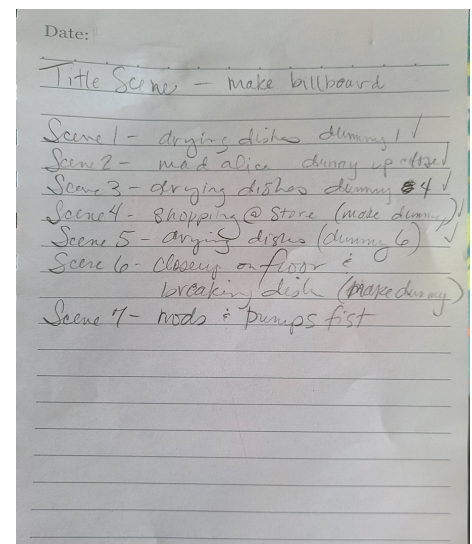 Date:
Title Scene - make billboard
Scene 1 - drying dishes dummy 1 ✓
Scene 2 - mad alice dummy up close ✓
Scene 3 - drying dishes dummy 4 ✓
Scene 4 - Shopping @ Store (make dummy) ✓
Scene 5 - drying dishes (dummy 6) ✓
Scene 6 - closeup on floor &
breaking dish (make dummy)
Scene 7 - nods & pumps fist